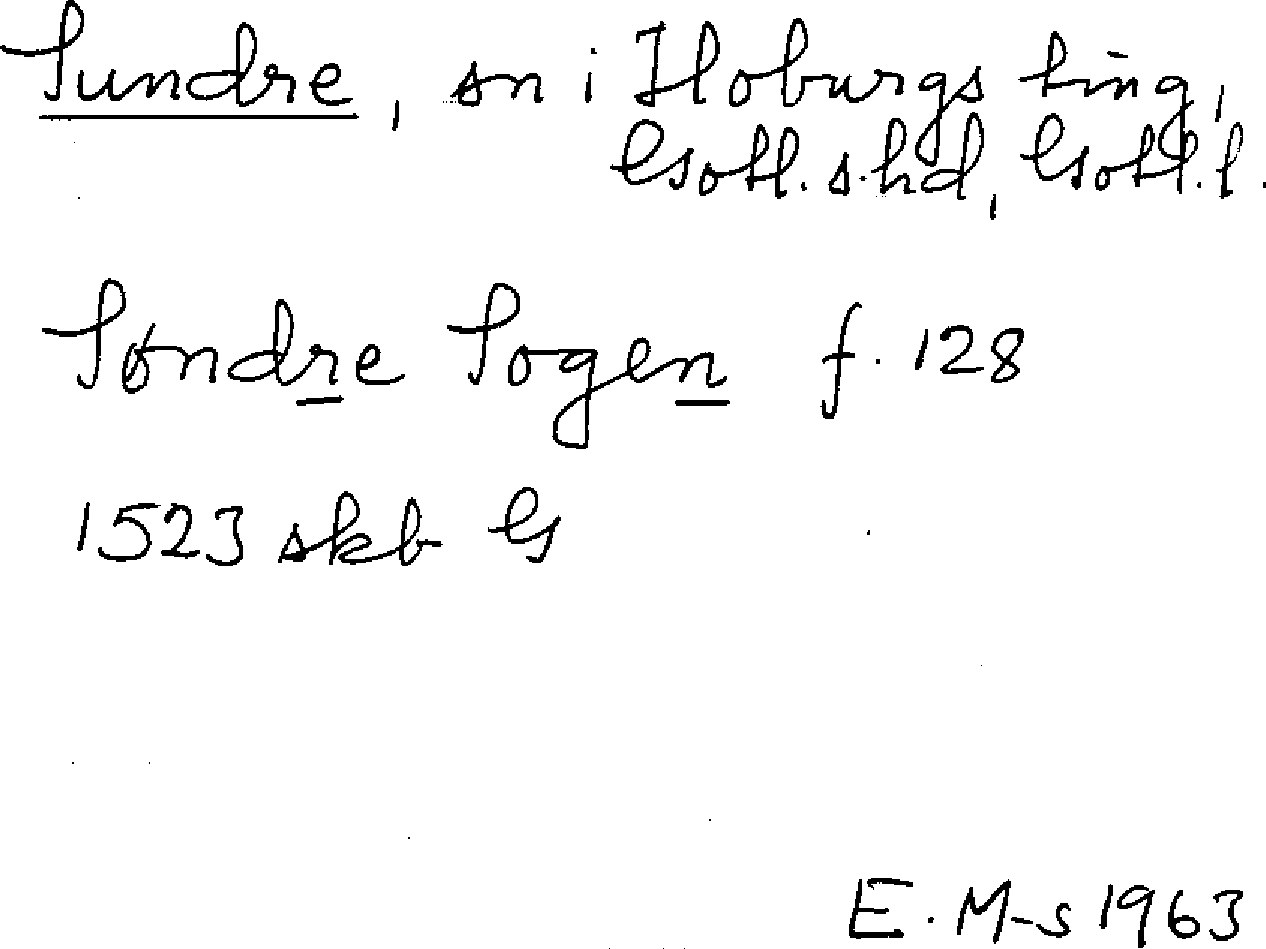 Sundre, sn i Hoburgs ting,
Gotl. s. hd, Gotl. l.
Søndre Sogen f. 128
1523 skb G
E. M-s 1963